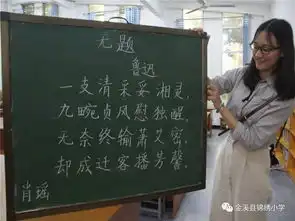 无题
鲁迅
一支清采妥湘灵，
九畹贞风慰独醒。
无奈终输萧艾密，
却成迁客播芳馨。
肖瑶
金溪县锦绣小学